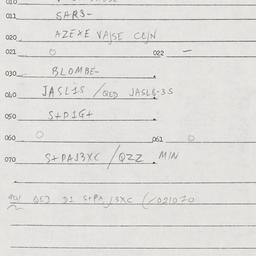 010
011 SARS-
020 AZEXE VAJSE CEJN
021 022 -
030 BLOMBE-
040 JASLIS / QED JASLS-3S
050 S+DIG+
060 061
070 S+PAJ3XC / QZZ MIN
QEJ DI S+PAJ3XC (/021070